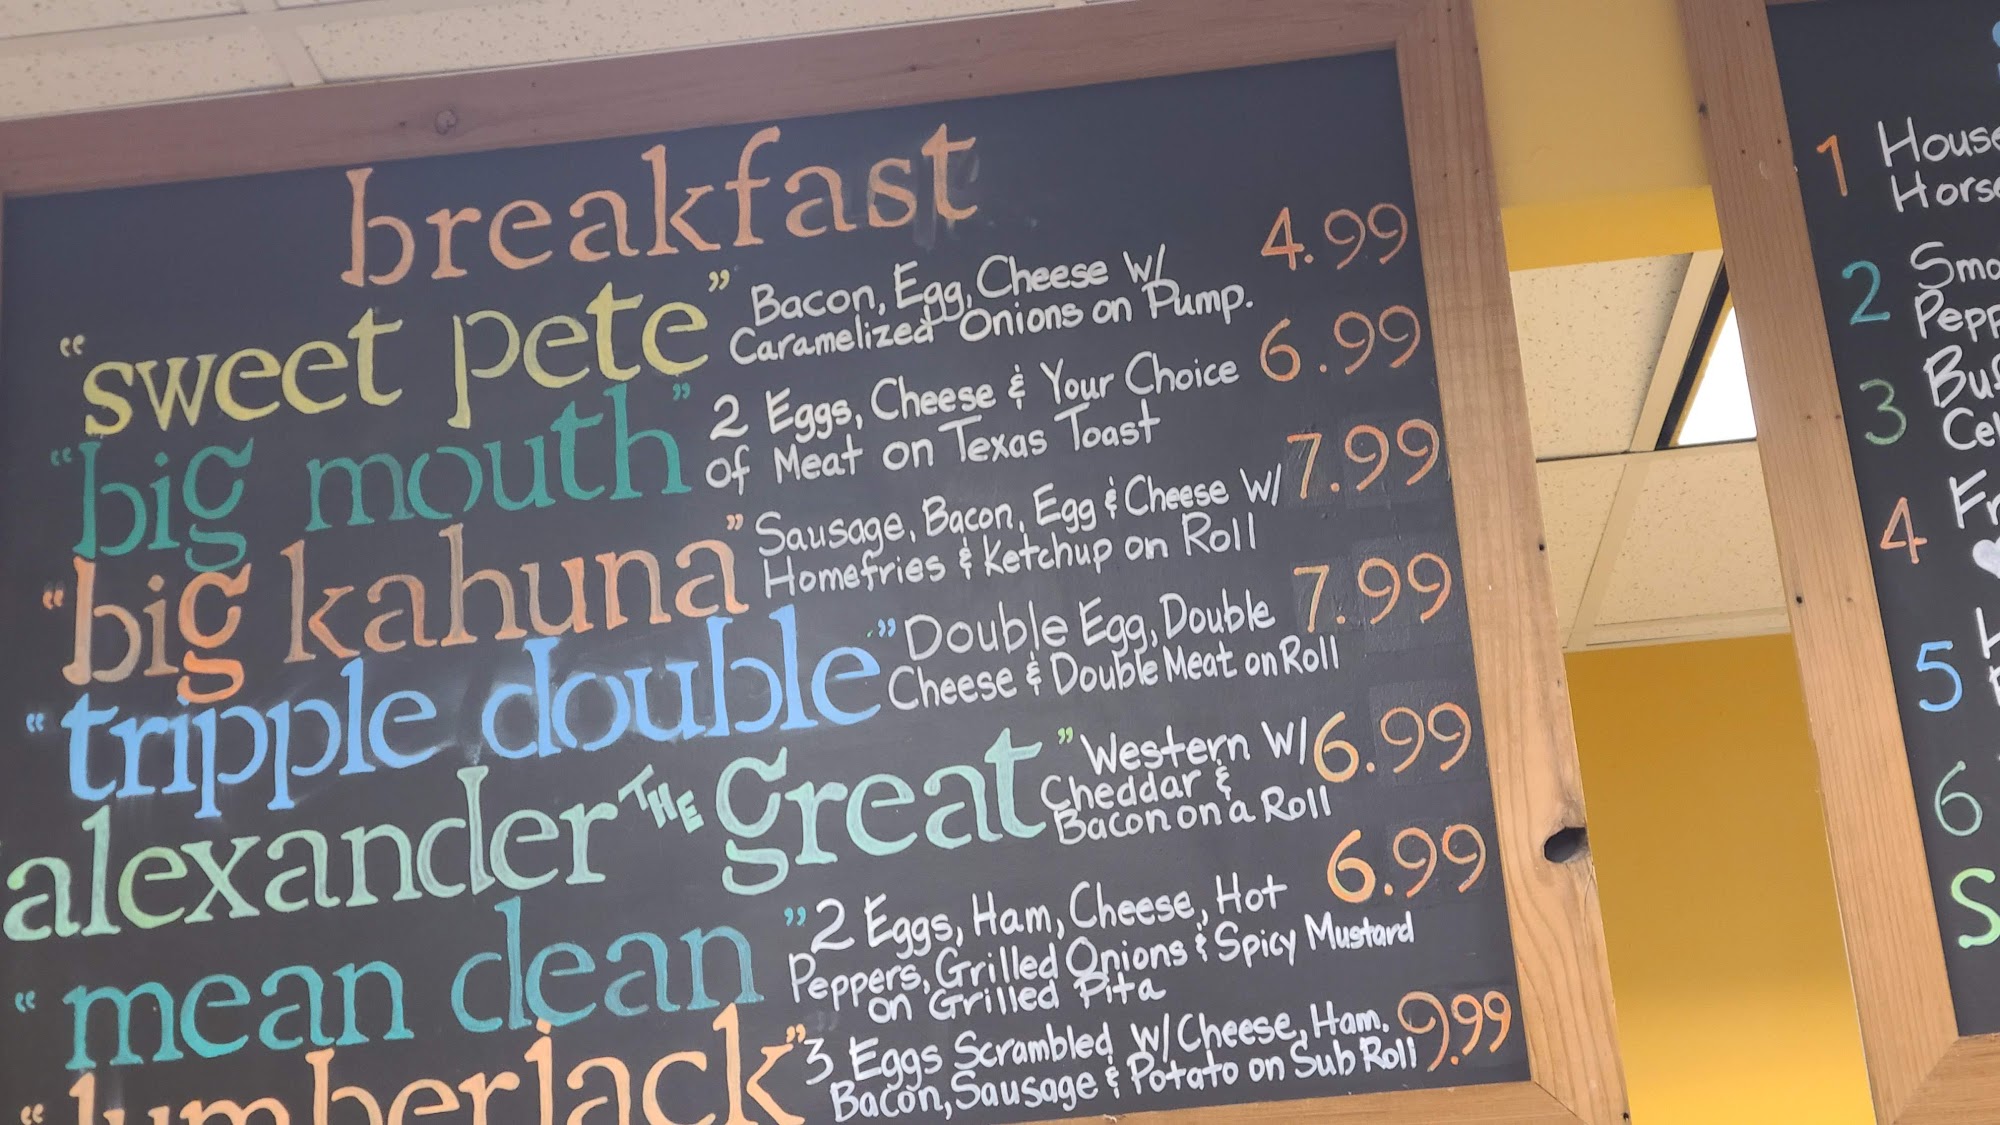 breakfast
"sweet pete" Bacon, Egg, Cheese W/ 4.99
Caramelized Onions on Pump.
"big mouth" 2 Eggs, Cheese & Your Choice 6.99
of Meat on Texas Toast
"big kahuna" Sausage, Bacon, Egg & Cheese W/ 7.99
Homefries & Ketchup on Roll
"tripple double" Double Egg, Double 7.99
Cheese & Double Meat on Roll
alexander THE great" Western W/ 6.99
Cheddar &
Bacon on a Roll
"mean dean" 2 Eggs, Ham, Cheese, Hot 6.99
Peppers, Grilled Onions & Spicy Mustard
on Grilled Pita
"lumberjack" 3 Eggs Scrambled W/ Cheese, Ham, 9.99
Bacon, Sausage & Potato on Sub Roll
1
2
3
4
5
6